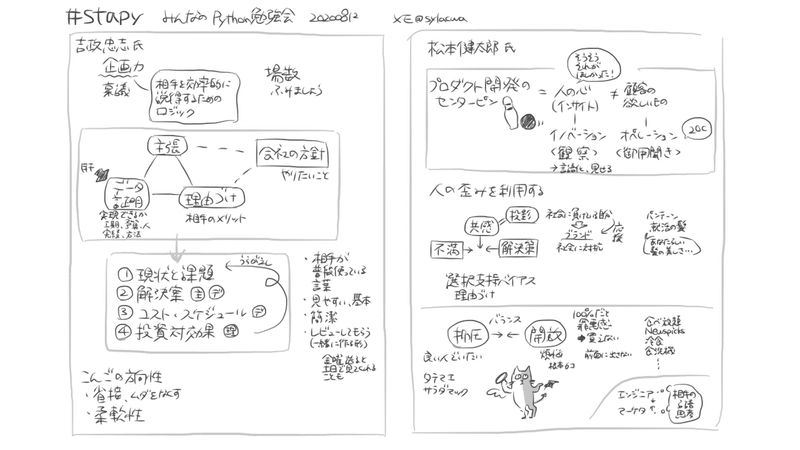 #stapy みんなのPython勉強会 20200812
吉政忠志氏
企画力
稟議
相手を効率的に
説得するための
ロジック
場数
ふみましょう
主張
会社の方針
やりたいこと
データ
証明
理由づけ
相手のメリット
実現できるか
①現状と課題
②解決案 主 デ
③コスト・スケジュール デ
④投資対効果 理
うらがえし
・相手が
普段使っている
言葉
・見やすい、基本
・簡潔
・レビューしてもらう
(一緒に作る形)
こんごの方向性
・省接、ムダをなくす
・柔軟性
松本健太郎氏
そうそう
それが
ほしかった!
プロダクト開発の
センターピン
= 人の心
(インサイト)
≠ 顧客の
欲しいもの
イノベーション
<観察>
→言語化、見せる
オペレーション
<御用聞き>
人の歪みを利用する
共感
投影
不満
解決策
社会に負けている部分
ブランド
社会に対抗
応援
パンテーン
就活の髪
あなたらしい
髪の美しさ…
選択支援バイアス
理由づけ
バランス
抑圧
開放
良い人でいたい
煩悩
タテマエ
サラダマック
100%だと
罪悪感
→買えない
食べ放題
Newspicks
冷食
食洗機
エンジニア
マーケタ
相手の
言語
思考